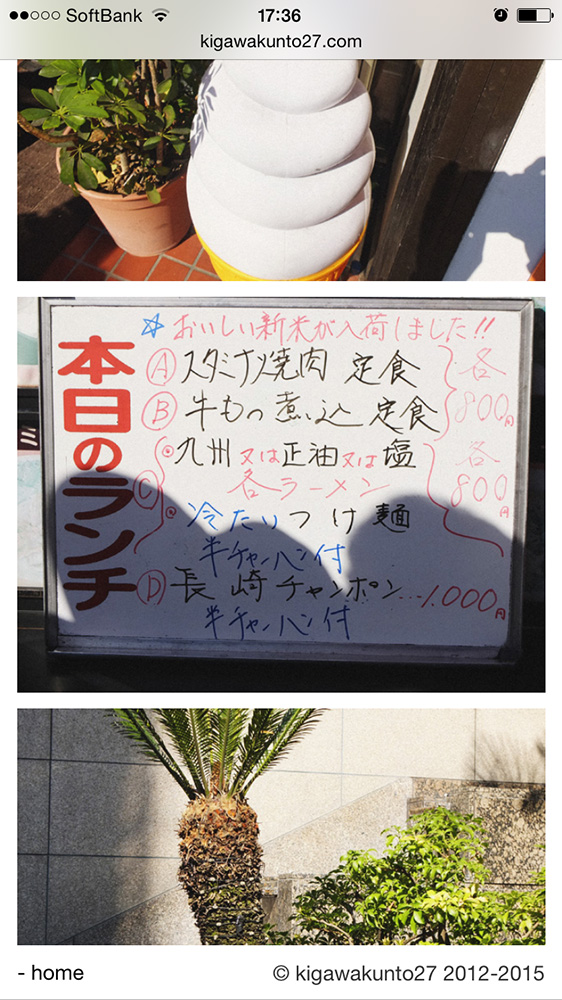 SoftBank 17:36
kigawakunto27.com
本日のランチ
☆おいしい新米が入荷しました!!
Ⓐ スタミナ焼肉 定食
Ⓑ 牛もつ煮込定食
各800円
Ⓒ
ⓐ 九州又は正油又は塩
各ラーメン
ⓑ 冷たいつけ麺
半チャーハン付
各800円
Ⓓ 長崎チャンポン...1.000円
半チャーハン付
- home
© kigawakunto27 2012-2015